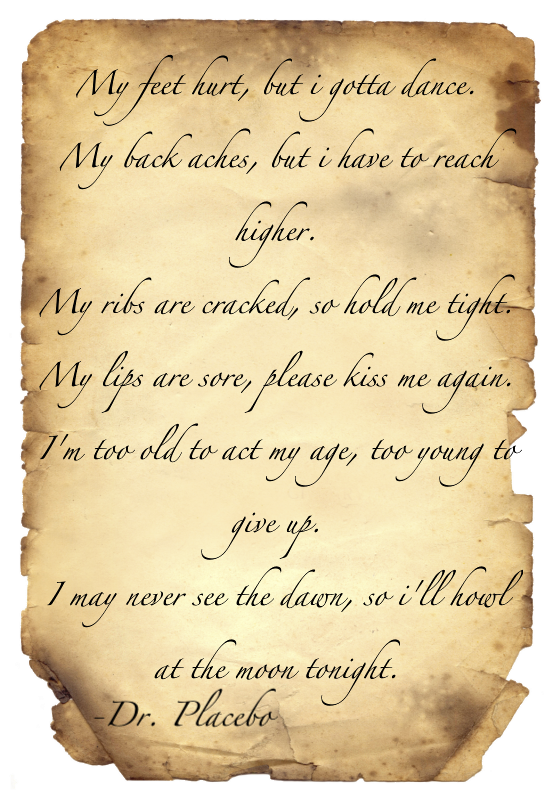 My feet hurt, but i gotta dance.
My back aches, but i have to reach
higher.
My ribs are cracked, so hold me tight.
My lips are sore, please kiss me again.
I'm too old to act my age, too young to
give up.
I may never see the dawn, so i'll howl
at the moon tonight.
-Dr. Placebo